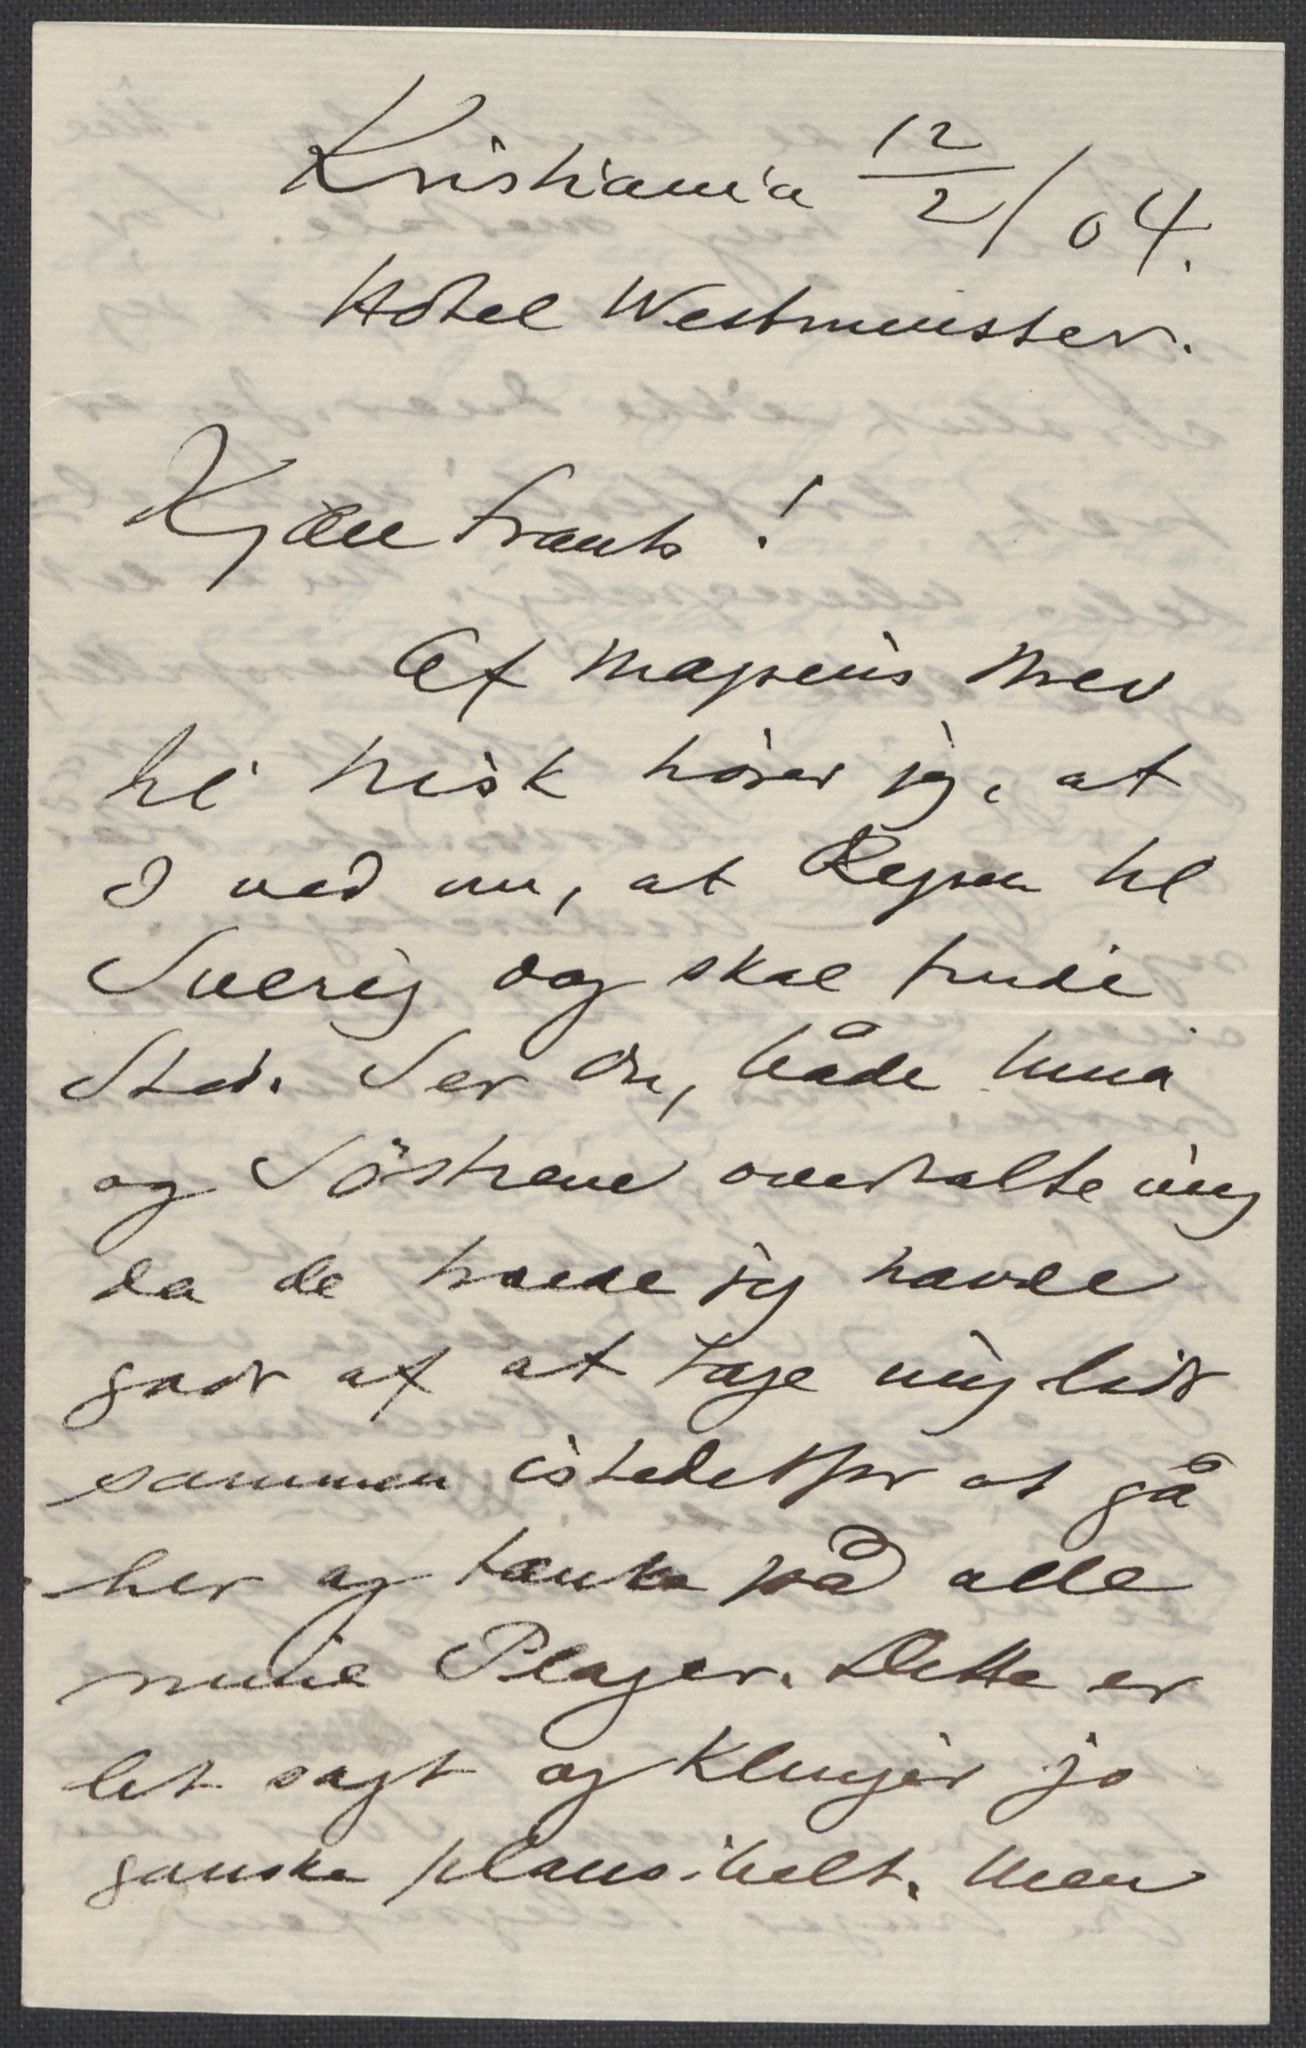 Kristiania 12/2/04.
Hôtel Westminster.
Kjære Frants!
Af Majsens Brev
til Tusk hører jeg, at
I ved nu, at Rejsen til
Sverig dog skal finde
Sted. Ser Du, både Nina
og Söstrene overtalte mig
da de troede jeg havde
godt af at tage mig lidt
sammen istedetfor at gå
her og tænke på alle
mine Plager. Dette er
let sagt og klinger jo
ganske plausibelt. Men